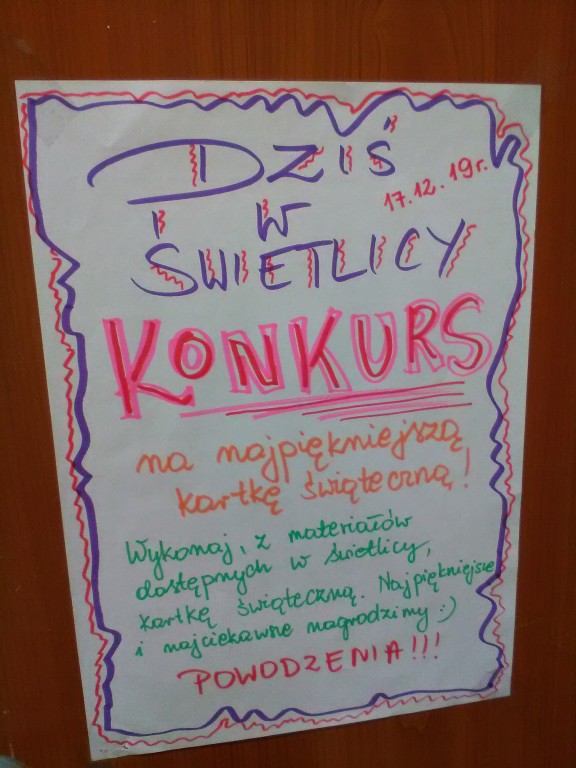 DZIŚ
17.12.19r.
W
ŚWIETLICY
KONKURS
na najpiękniejszą
kartkę świąteczną!
Wykonaj, z materiałów
dostępnych w świetlicy,
kartkę świąteczną. Najpiękniejsze
i najciekawsze nagrodzimy :)
POWODZENIA!!!